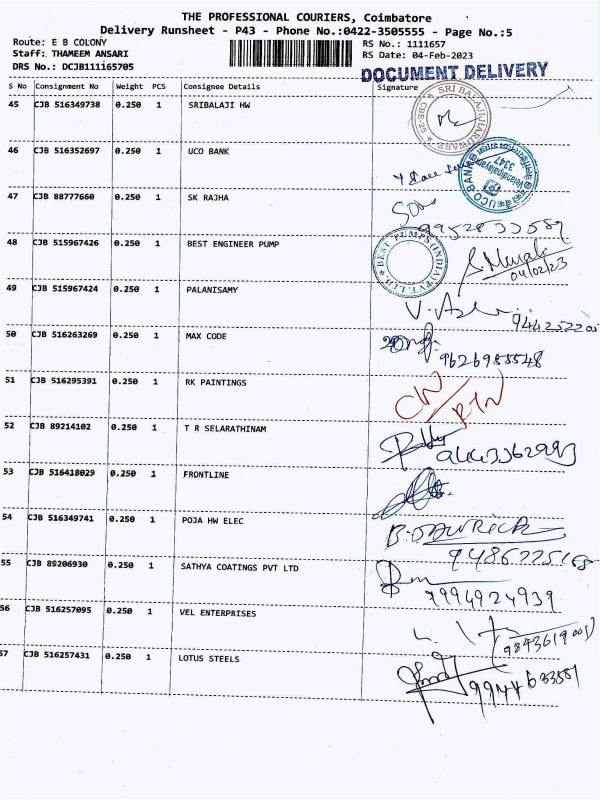 THE PROFESSIONAL COURIERS, Coimbatore
Delivery Runsheet - P43 - Phone No.:0422-3505555 - Page No.:5
Route: E B COLONY
Staff: THAMEEM ANSARI
DRS No.: DCJB111165705
RS No.: 1111657
RS Date: 04-Feb-2023
DOCUMENT DELIVERY
S No Consignment No Weight PCS Consignee Details Signature
45 CJB 516349738 0.250 1 SRIBALAJI HW
SRI BALAJI HARDWARE
46 CJB 516352697 0.250 1 UCO BANK
UCO BANK
3347
47 CJB 88777660 0.250 1 SK RAJHA
48 CJB 515967426 0.250 1 BEST ENGINEER PUMP
BEST PUMPS (INDIA) PVT. LTD.
04/02/23
49 CJB 515967424 0.250 1 PALANISAMY
50 CJB 516263269 0.250 1 MAX CODE
51 CJB 516295391 0.250 1 RK PAINTINGS
52 CJB 89214102 0.250 1 T R SELARATHINAM
53 CJB 516418029 0.250 1 FRONTLINE
54 CJB 516349741 0.250 1 POJA HW ELEC
55 CJB 89206930 0.250 1 SATHYA COATINGS PVT LTD
7994924939
56 CJB 516257095 0.250 1 VEL ENTERPRISES
57 CJB 516257431 0.250 1 LOTUS STEELS